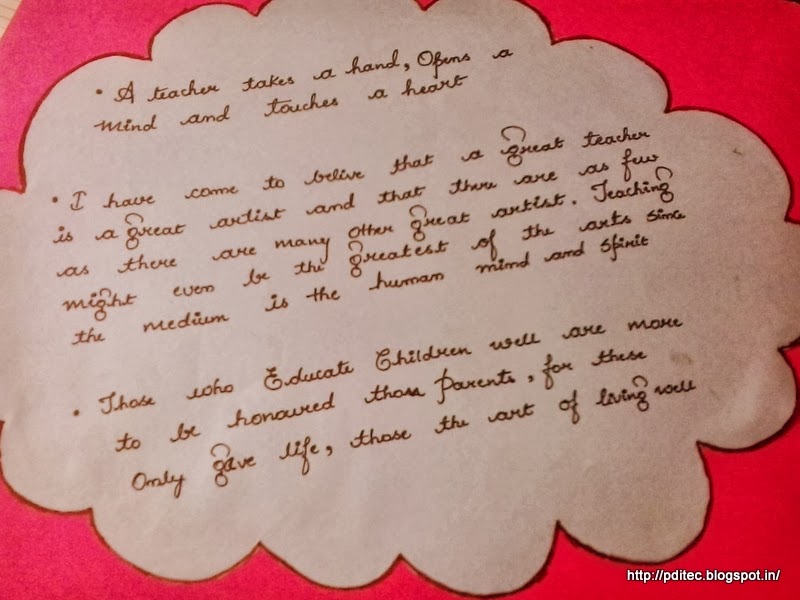 • A teacher takes a hand, Opens a
mind and touches a heart
• I have come to belive that a great teacher
is a great artist and that there are as few
as there are many other great artist. Teaching
might even be the greatest of the arts since
the medium is the human mind and spirit
• Those who Educate Children well are more
to be honoured than parents, for these
Only gave life, those the art of living well
http://pditec.blogspot.in/